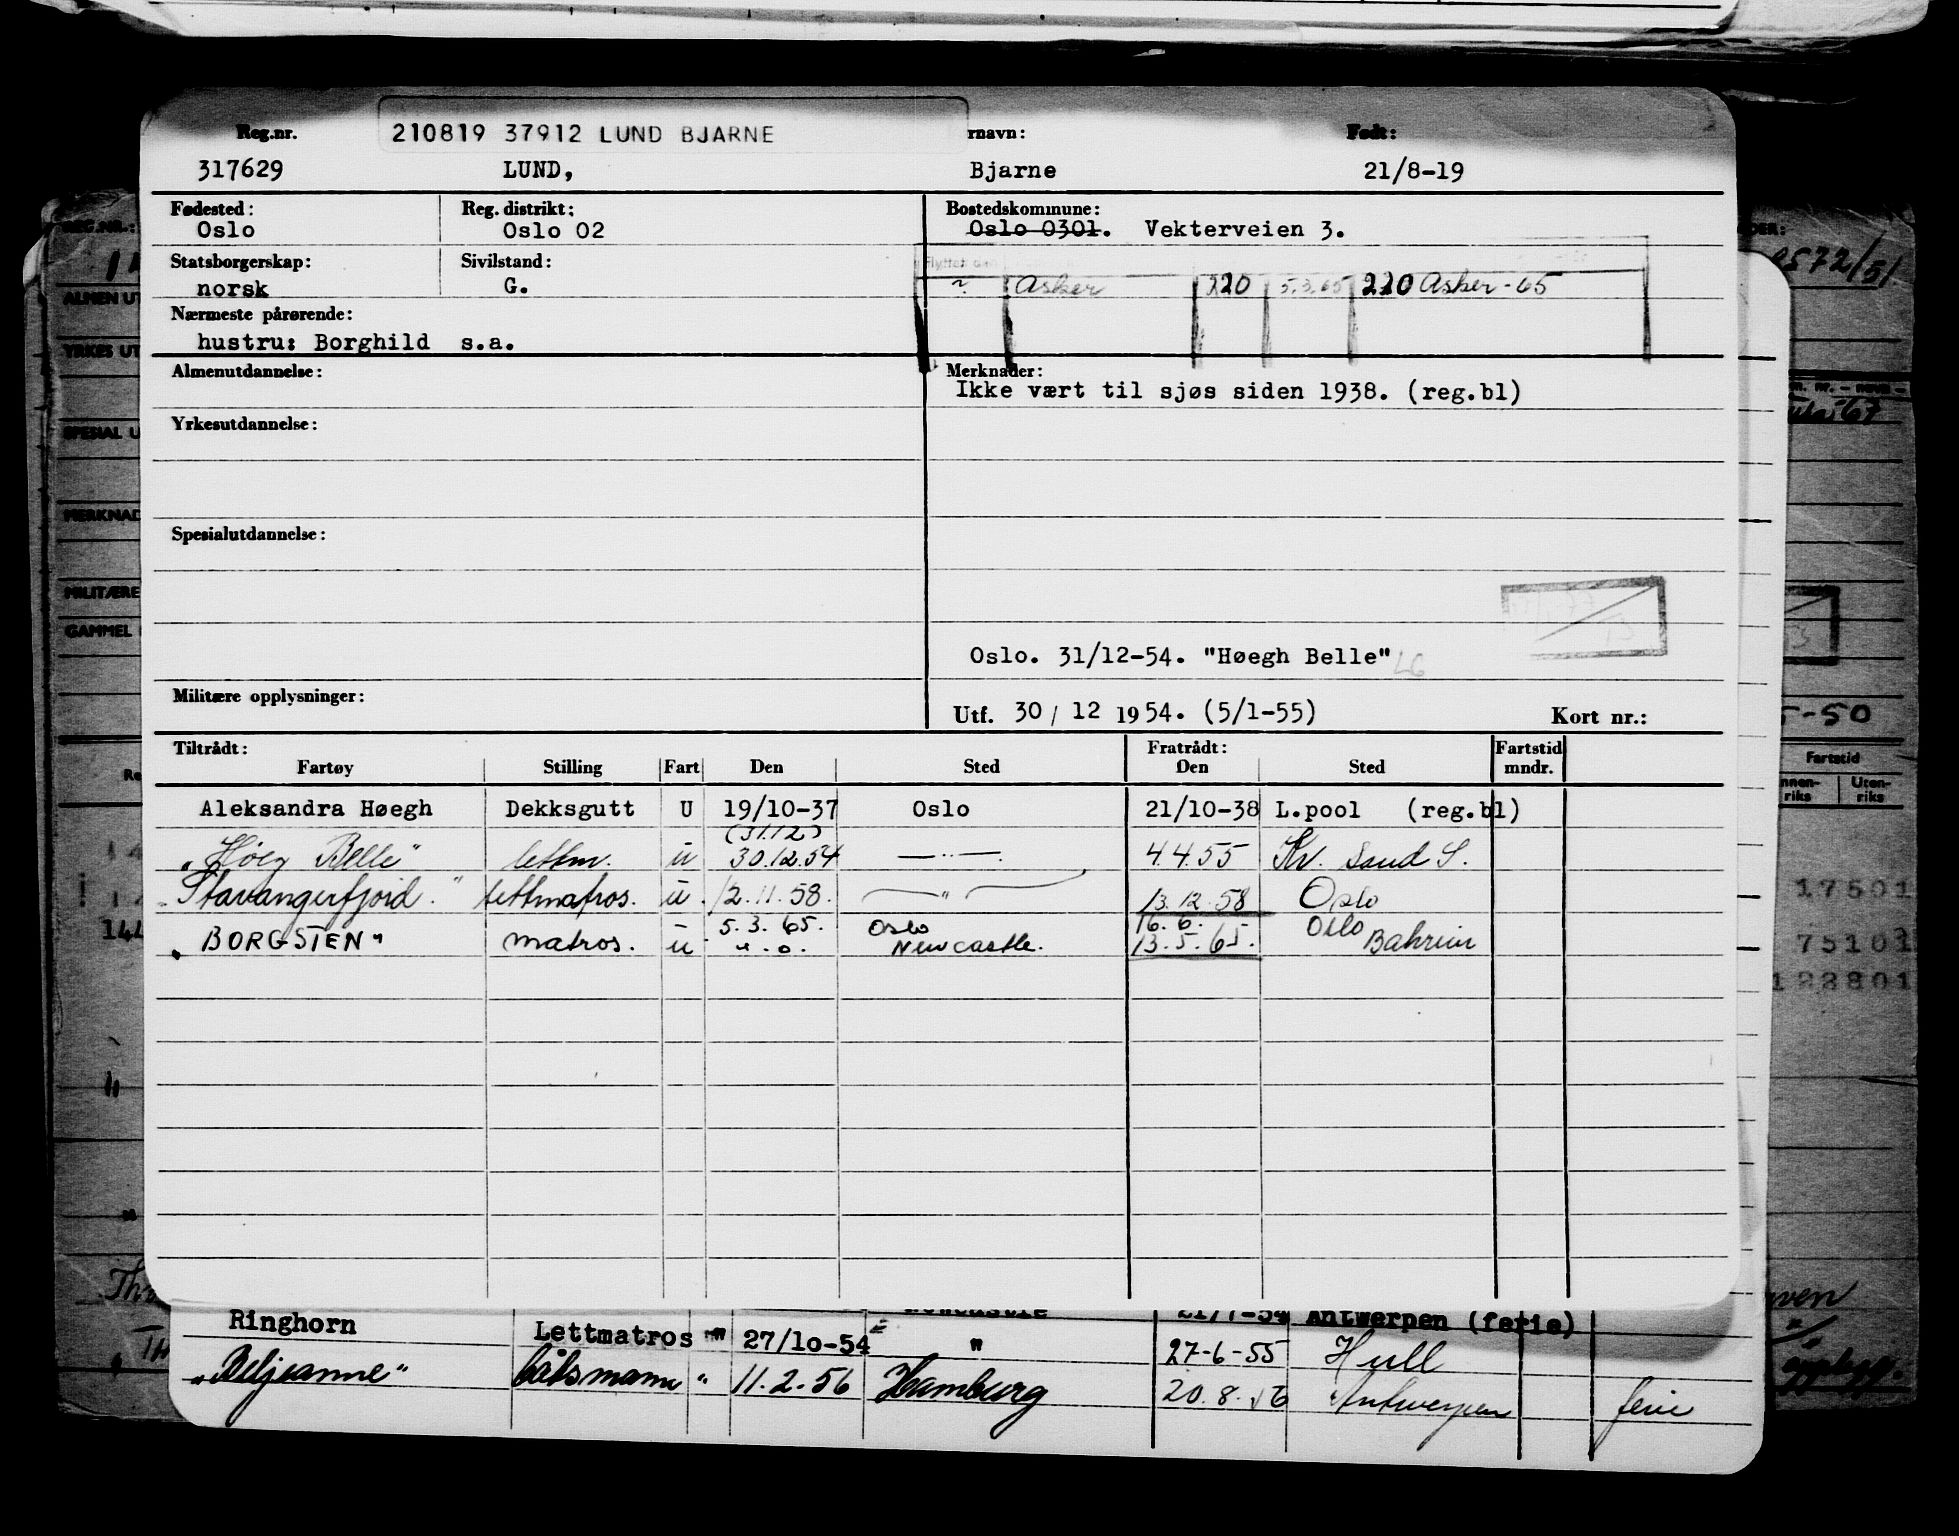 Reg.nr. 210819 37912 LUND BJARNE rnavn: Født:
317629 LUND, Bjarne 21/8-19
Fødested: Reg. distrikt: Bostedskommune:
Oslo Oslo 02 Oslo 0301. Vekterveien 3.
Statsborgerskap: Sivilstand:
norsk G. Asker 220 5.3.65 220 Asker-65
Nærmeste pårørende:
hustru: Borghild s.a.
Almenutdannelse: Merknader:
Ikke vært til sjøs siden 1938. (reg.bl)
Yrkesutdannelse:
Spesialutdannelse:
Oslo. 31/12-54. "Høegh Belle"
Militære opplysninger: Utf. 30/12 1954. (5/1-55) Kort nr.:
Tiltrådt: Fratrådt: Fartstid
Fartøy Stilling Fart Den Sted Den Sted mndr.
Aleksandra Høegh Dekksgutt U 19/10-37 Oslo 21/10-38 L.pool (reg.bl)
(31.12)
"Høeg Belle" lettm. u 30.12.54 —"— 4.4.55 Kr. Sand S.
"Stavangerfjord." lettmatros. u. 12.11.58. —"— 13.12.58 Oslo
5.3.65. Oslo 16.6. Oslo
"BORGSTEN" matros. u Newcastle. 13.5.65. Bahrein
21/7-54 Antwerpen (ferie)
Ringhorn Lettmatros "" 27/10-54 " 27-6-55 Hull
"Beljeanne" båtsmann " 11.2.56 Hamburg 20.8.56 Antwerpen ferie
REG.NR.:
ALMEN UT
YRKES UT
SPESIAL U
MERKNAD
MILITÆRE
GAMMEL
572/51
5-50
Fartstid
nnen-riks Uten-riks
17501
75101
123801